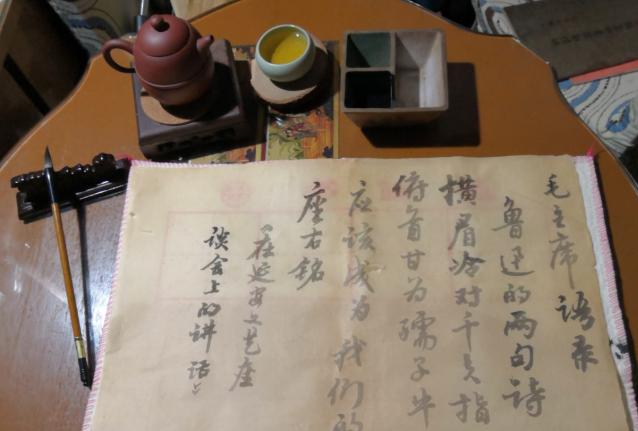 毛主席语录
鲁迅的两句诗
横眉冷对千夫指
俯首甘为孺子牛
应该成为我们的
座右铭
在延安文艺座
谈会上的讲话